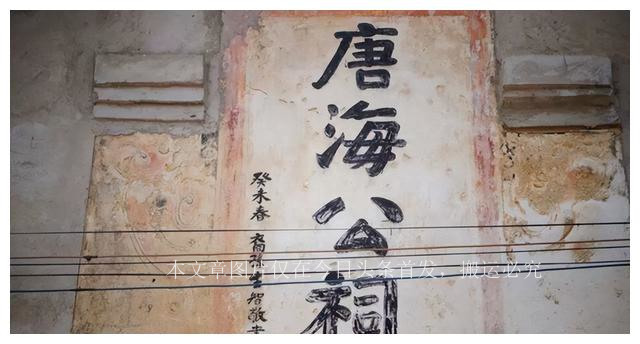 唐海公祠
癸未春 裔孫生智敬書
本文章图片仅在今日头条首发，搬运必究